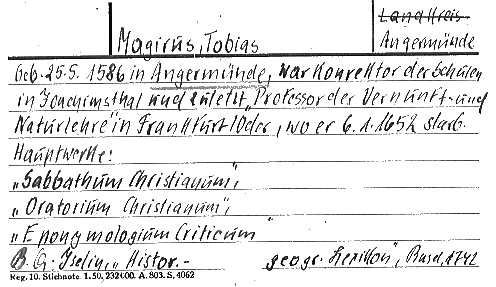 Landkreis
Magirus, Tobias
Angermünde
Geb. 25.5. 1586 in Angermünde, war Konrektor der Schulen
in Joachimsthal und zuletzt „Professor der Vernunft- und
Naturlehre" in Frankfurt/Oder, wo er 6.1.1652 starb.
Hauptwerke:
„Sabbathum Christianum",
„Oratorium Christianum",
„Eponymologium Criticum"
B. Q: Iselin, „Histor.- geogr. Lexikon", Basel, 1742
Reg. 10. Stichnote. 1.50, 232600. A. 803. S. 4062